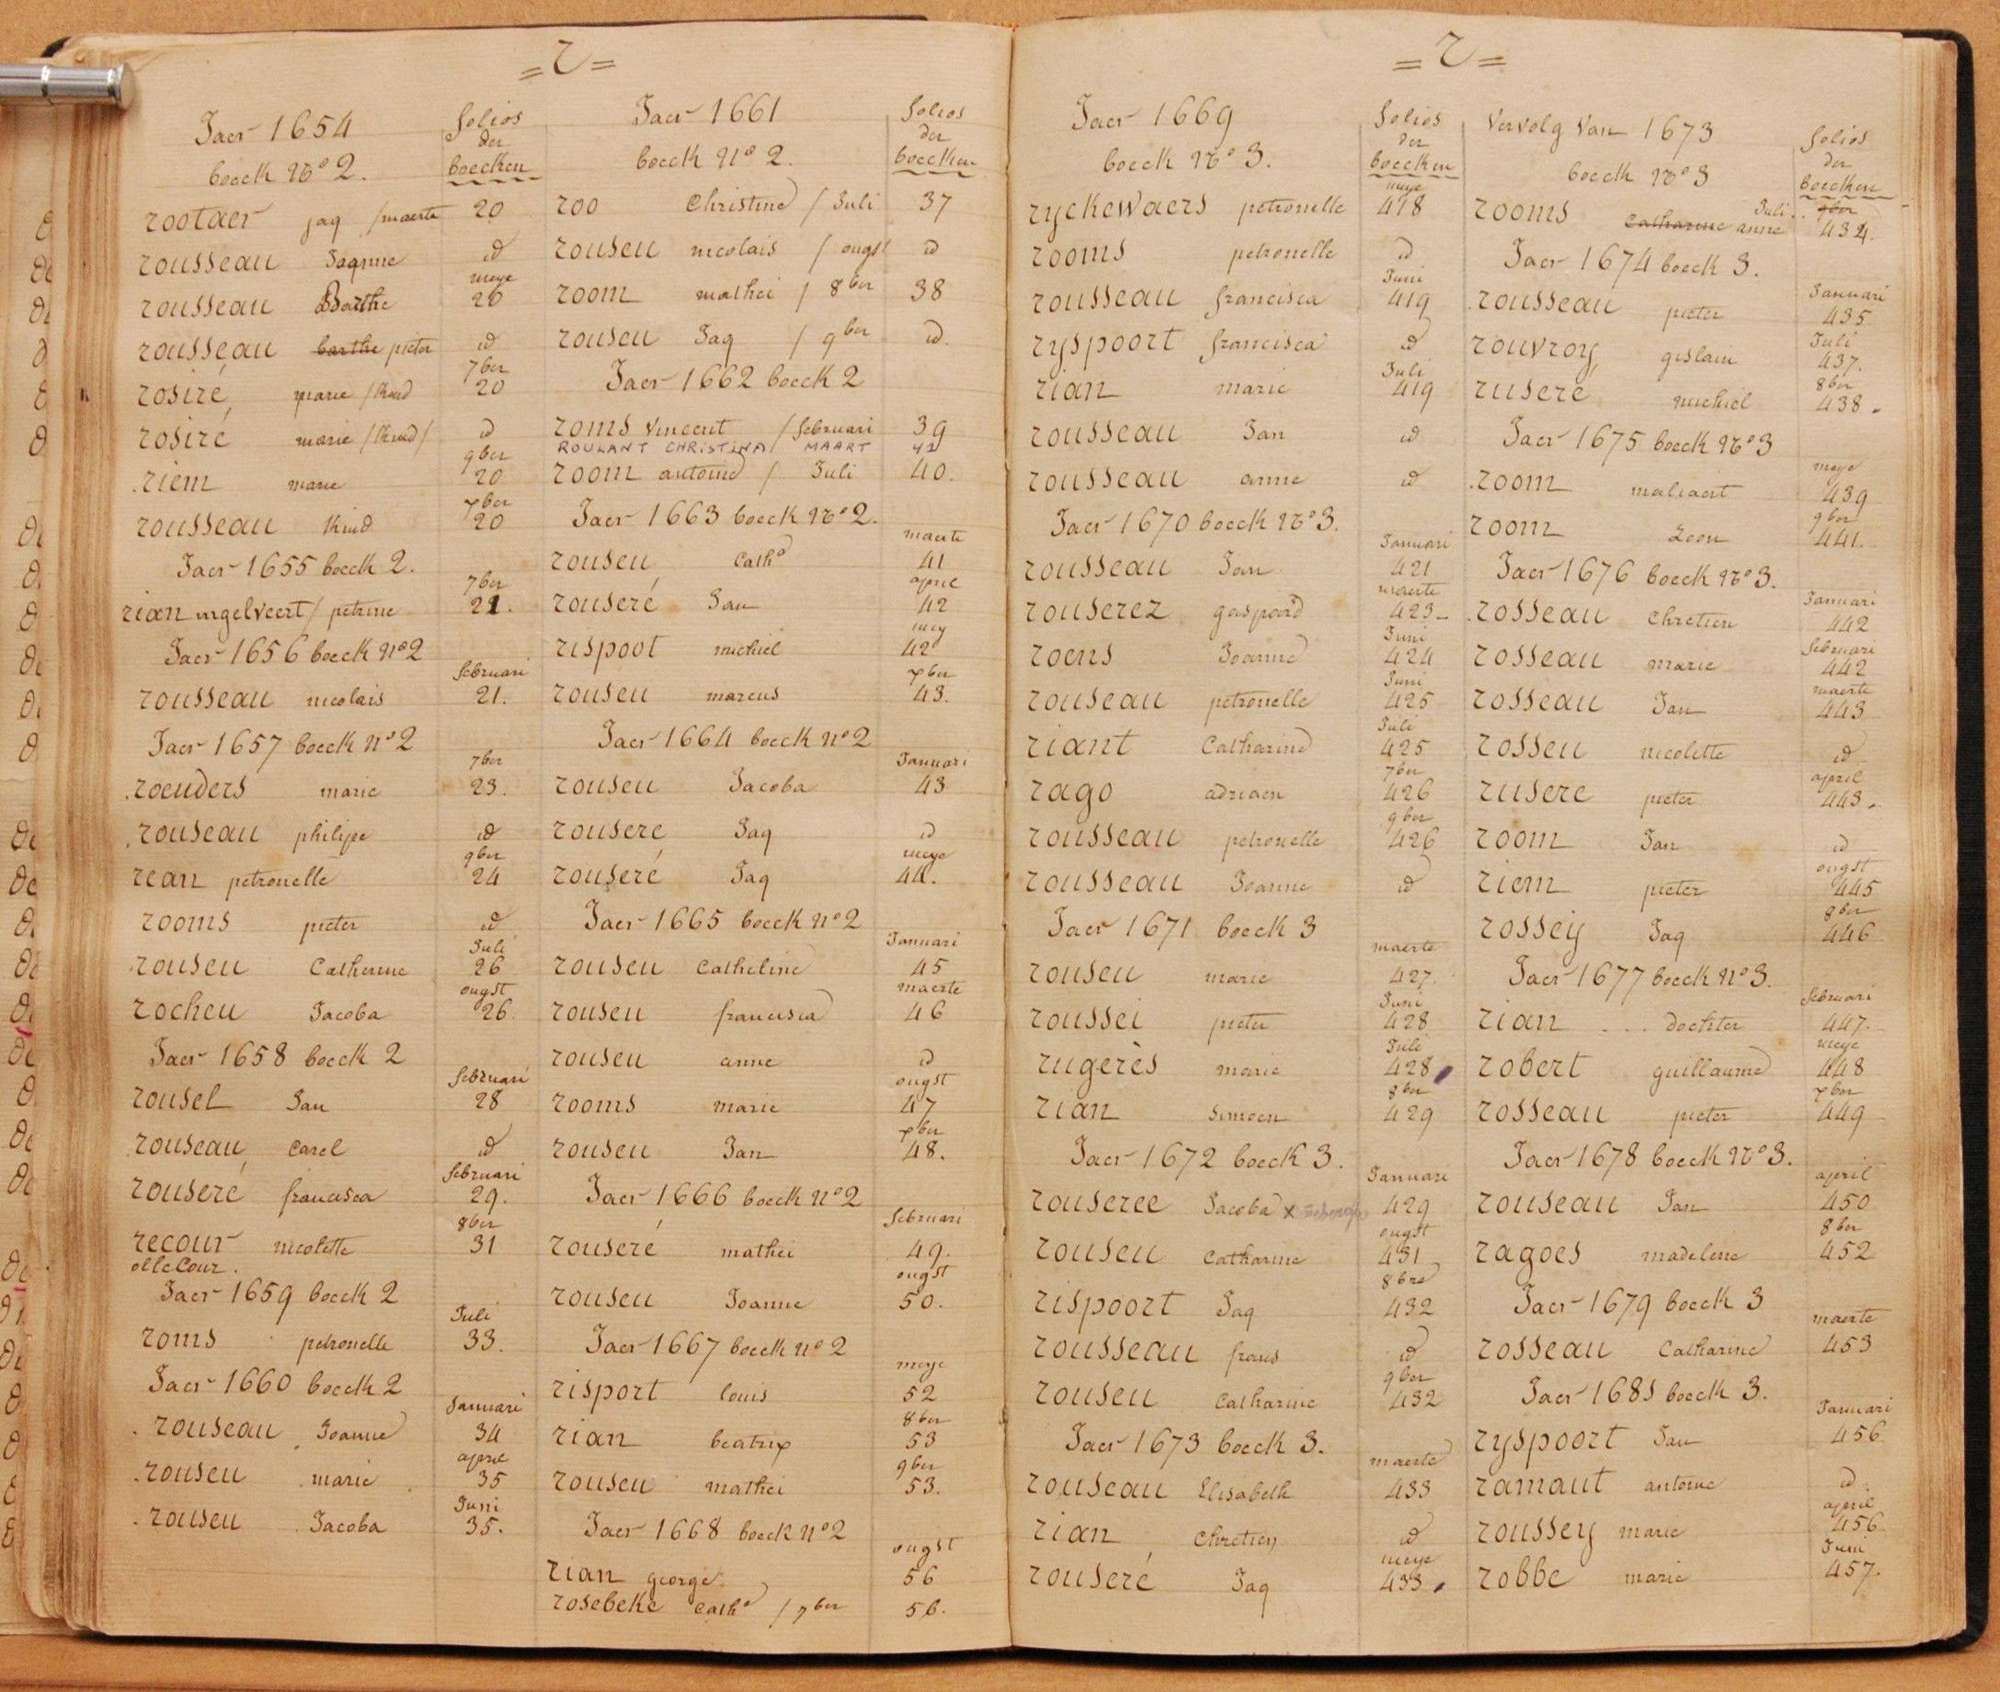 = r =
Jaer 1654
folios
der
boecken
boeck No 2.
rootaer jaq / maerte 20
rousseau Jaqmine id
meye
rousseau Barthe 20
rousseau barthe pieter id
7ber
rosiré marie / kind 20
rosiré marie / kind / id
9ber
riem marie 20
xber
rousseau kind 20
Jaer 1655 boeck 2.
7ber
rian ingelveert / petrine 21.
Jaer 1656 boeck No 2
februari
rousseau nicolais 21.
Jaer 1657 boeck No 2
7ber
roenders marie 23.
rouseau philipe id
9ber
rean petronelle 24
rooms pieter id
Juli
rouseu Catherine 26
ougst
rocheu Jacoba 26.
Jaer 1658 boeck 2
februari
rousel Jan 28
rouseau Carel id
februari
rouseré francisca 29.
8ber
recour nicolette 31
olle Cour.
Jaer 1659 boeck 2
Juli
roms petronelle 33.
Jaer 1660 boeck 2
Januari
rouseau Joanne 34
april
rouseu marie 35
Juni
rouseu Jacoba 35.
Jaer 1661
folios
der
boecken
boeck No 2.
roo Christine / Juli 37
rouseu nicolais / ougst id
room mathei / 8ber 38
rouseu Jaq / 9ber id.
Jaer 1662 boeck 2
roms Vincent / februari 39
ROULANT CHRISTINA / MAART 42
room antoine / Juli 40.
Jaer 1663 boeck No 2.
maerte
rouseu Cath 41
april
rouseré Jan 42
mey
rispoot michiel 42
xber
rouseu marcus 43.
Jaer 1664 boeck No 2
Januari
rouseu Jacoba 43
rousere Jaq id
meye
rouseré Jaq 44.
Jaer 1665 boeck No 2
Januari
rouseu Catheline 45
maerte
rouseu francisca 46
rouseu anne id
ougst
rooms marie 47
xber
rouseu Jan 48.
Jaer 1666 boeck No 2
februari
rouseré mathei 49.
ougst
rouseu Joanne 50.
Jaer 1667 boeck No 2
meye
risport louis 52
8ber
rian beatrix 53
9ber
rouseu mathei 53.
Jaer 1668 boeck No 2
ougst
rian george 56
rosebeke Cath / 7ber 56.
= r =
Jaer 1669
folios
der
boecken
boeck No 3.
meye
ryckewaers petronelle 418
rooms petronelle id
Juni
rousseau francisca 419
ryspoort francisca id
Juli
rian marie 419
rousseau Jan id
rousseau anne id
Jaer 1670 boeck No 3.
Januari
rousseau Jan 421
maerte
rouserez gaspard 423
Juni
roens Joanne 424
Juni
rouseau petronelle 425
Juli
riant Catharine 425
7ber
rago adriaen 426
9ber
rousseau petronelle 426
rousseau Joanne id
Jaer 1671 boeck 3
maerte
rouseu marie 427.
Juni
roussei pieter 428
Juli
rugerès marie 428
8ber
rian Simoen 429
Jaer 1672 boeck 3.
Januari
rouseree Jacoba x 429
ougst
rouseu Catharine 431
8bre
rispoort Jaq 432
rousseau frans id
9ber
rouseu Catharine 432
Jaer 1673 boeck 3.
maerte
rouseau Elisabeth 433
rian Chretien id
meye
rouseré Jaq 433
Vervolg Van 1673
folios
der
boecken
boeck No 3
Juli 9ber
rooms Catharine anne 434.
Jaer 1674 boeck 3.
Januari
rousseau pieter 435
Juli
rouvroy gislain 437.
8ber
ruseré michiel 438
Jaer 1675 boeck No 3
meye
room maliaert 439
9ber
room Leon 441.
Jaer 1676 boeck No 3.
Januari
rosseau Chretien 442
februari
rosseau marie 442
maerte
rosseau Jan 443
rosseu nicolette id
april
rusere pieter 443
room Jan id
ougst
riem pieter 445
8ber
rossey Jaq 446
Jaer 1677 boeck No 3.
februari
rian ... dochter 447.
meye
robert guillaume 448
xber
rosseau pieter 449
Jaer 1678 boeck No 3.
april
rouseau Jan 450
8ber
ragoes madelene 452
Jaer 1679 boeck 3
maerte
rosseau Catharine 453
Jaer 1681 boeck 3.
Januari
ryspoort Jan 456
ramaut antoine id.
april
roussey marie 456
Juni
robbe marie 457.